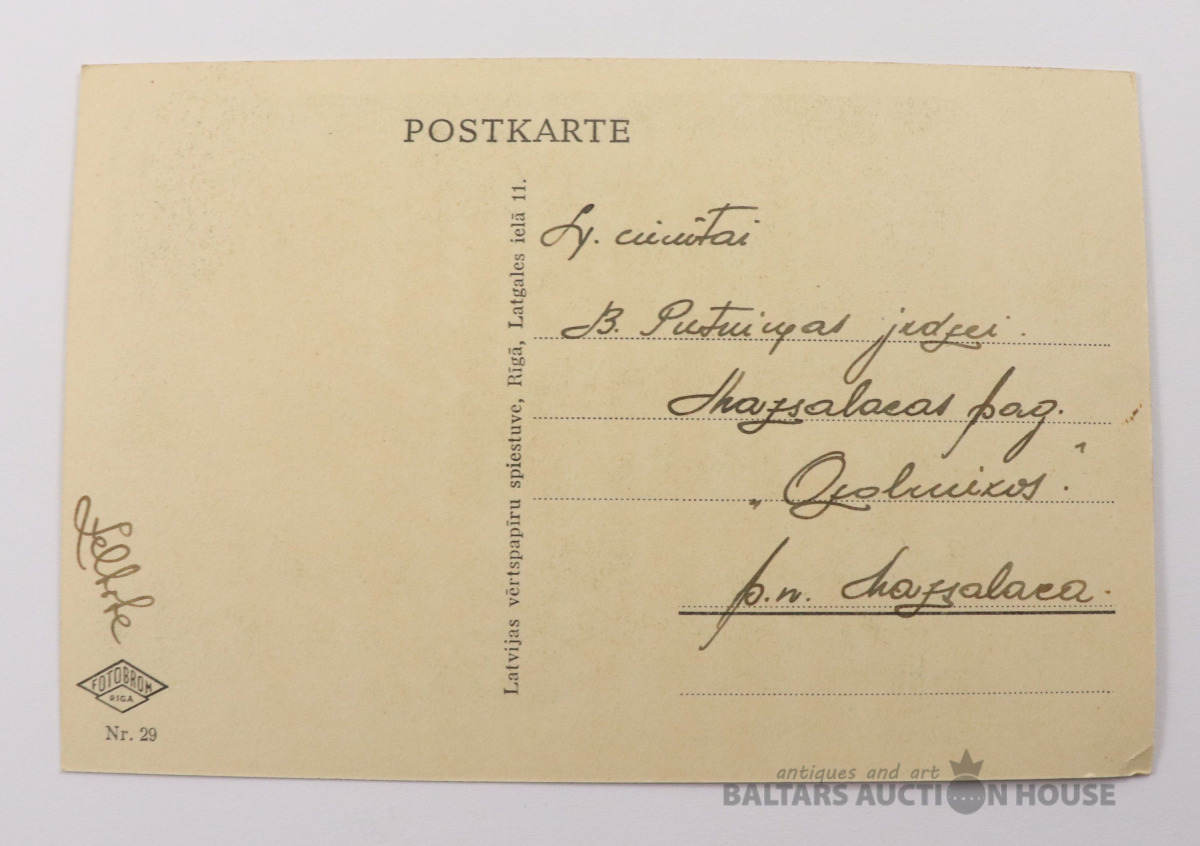 POSTKARTE
Latvijas vērtspapīru spiestuve, Rīgā, Latgales ielā 11.
Ļ. cienītai
B. Putniņas jrdzei.
Mazsalacas pag.
„Ozolnīkos."
p.n. Mazsalaca.
FOTOBROM
RIGA
Nr. 29
antiques and art
BALTARS AUCTION HOUSE